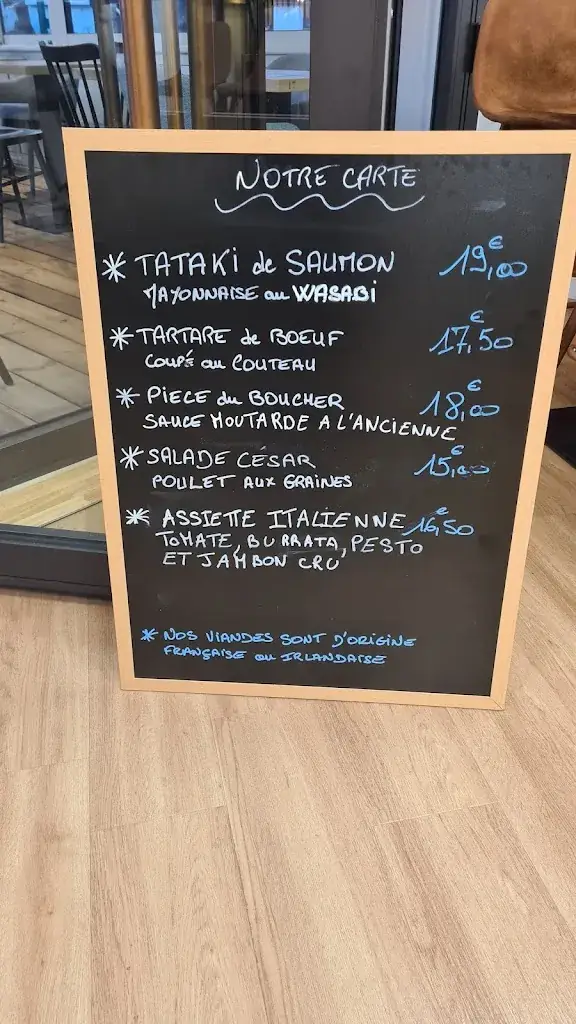 NOTRE CARTE
* TATAKI de SAUMON 19,00€
MAYONNAISE au WASABI
* TARTARE de BOEUF 17,50€
COUPÉ au COUTEAU
* PIECE du BOUCHER 18,00€
SAUCE MOUTARDE A L'ANCIENNE
* SALADE CÉSAR 15,00€
POULET AUX GRAINES
* ASSIETTE ITALIENNE 16,50€
TOMATE, BURRATA, PESTO
ET JAMBON CRU
* NOS VIANDES SONT D'ORIGINE
FRANÇAISE ou IRLANDAISE